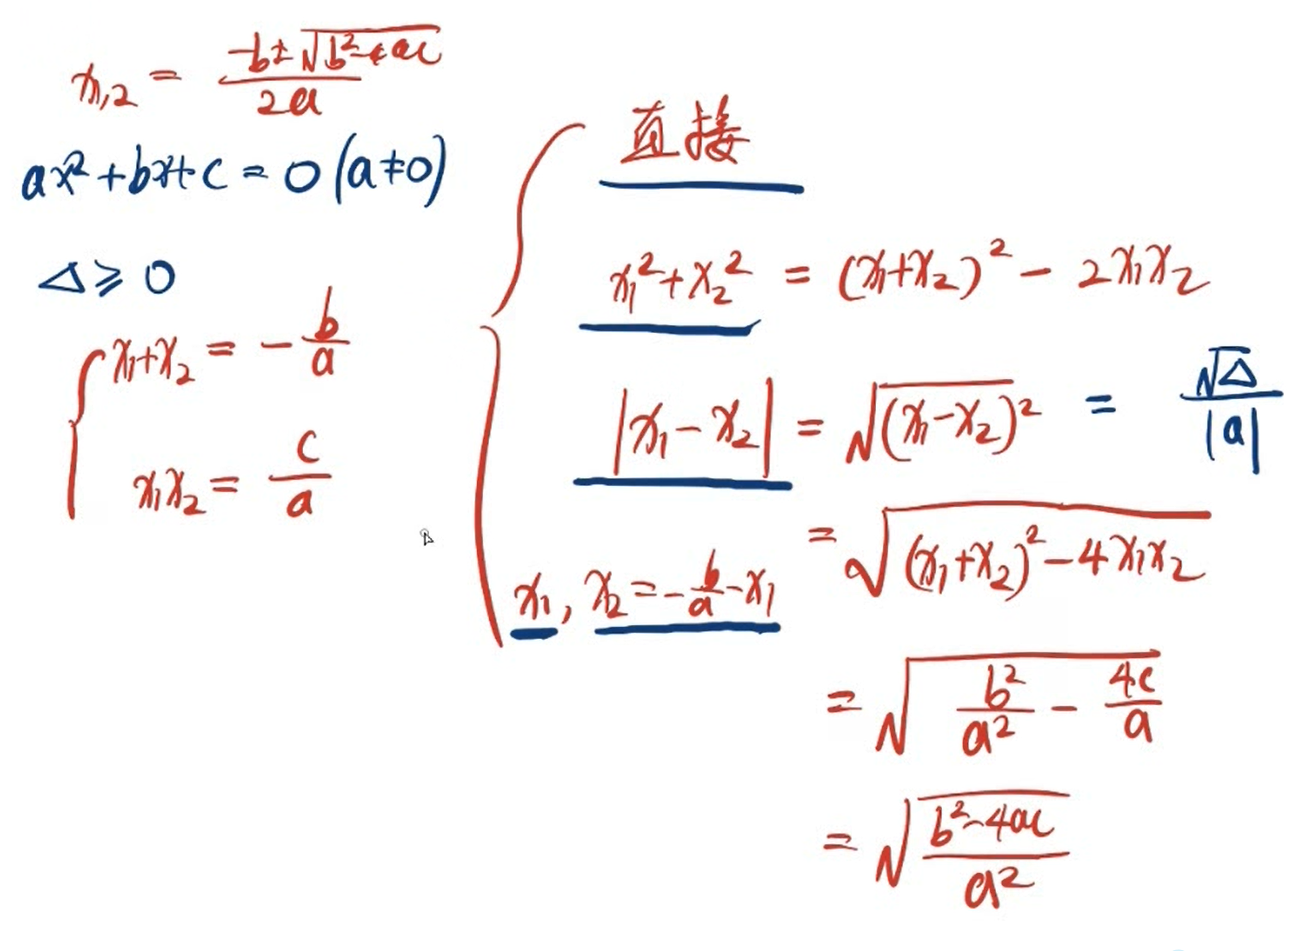 x₁,₂ = (-b±√(b²-4ac))/(2a)
ax²+bx+c=0(a≠0)
Δ⩾0
x₁+x₂ = -b/a
x₁x₂ = c/a
直接
x₁²+x₂² = (x₁+x₂)² - 2x₁x₂
|x₁-x₂| = √(x₁-x₂)² = √Δ/|a|
= √((x₁+x₂)²-4x₁x₂)
x₁, x₂=-b/a-x₁
= √(b²/a² - 4c/a)
= √((b²-4ac)/a²)